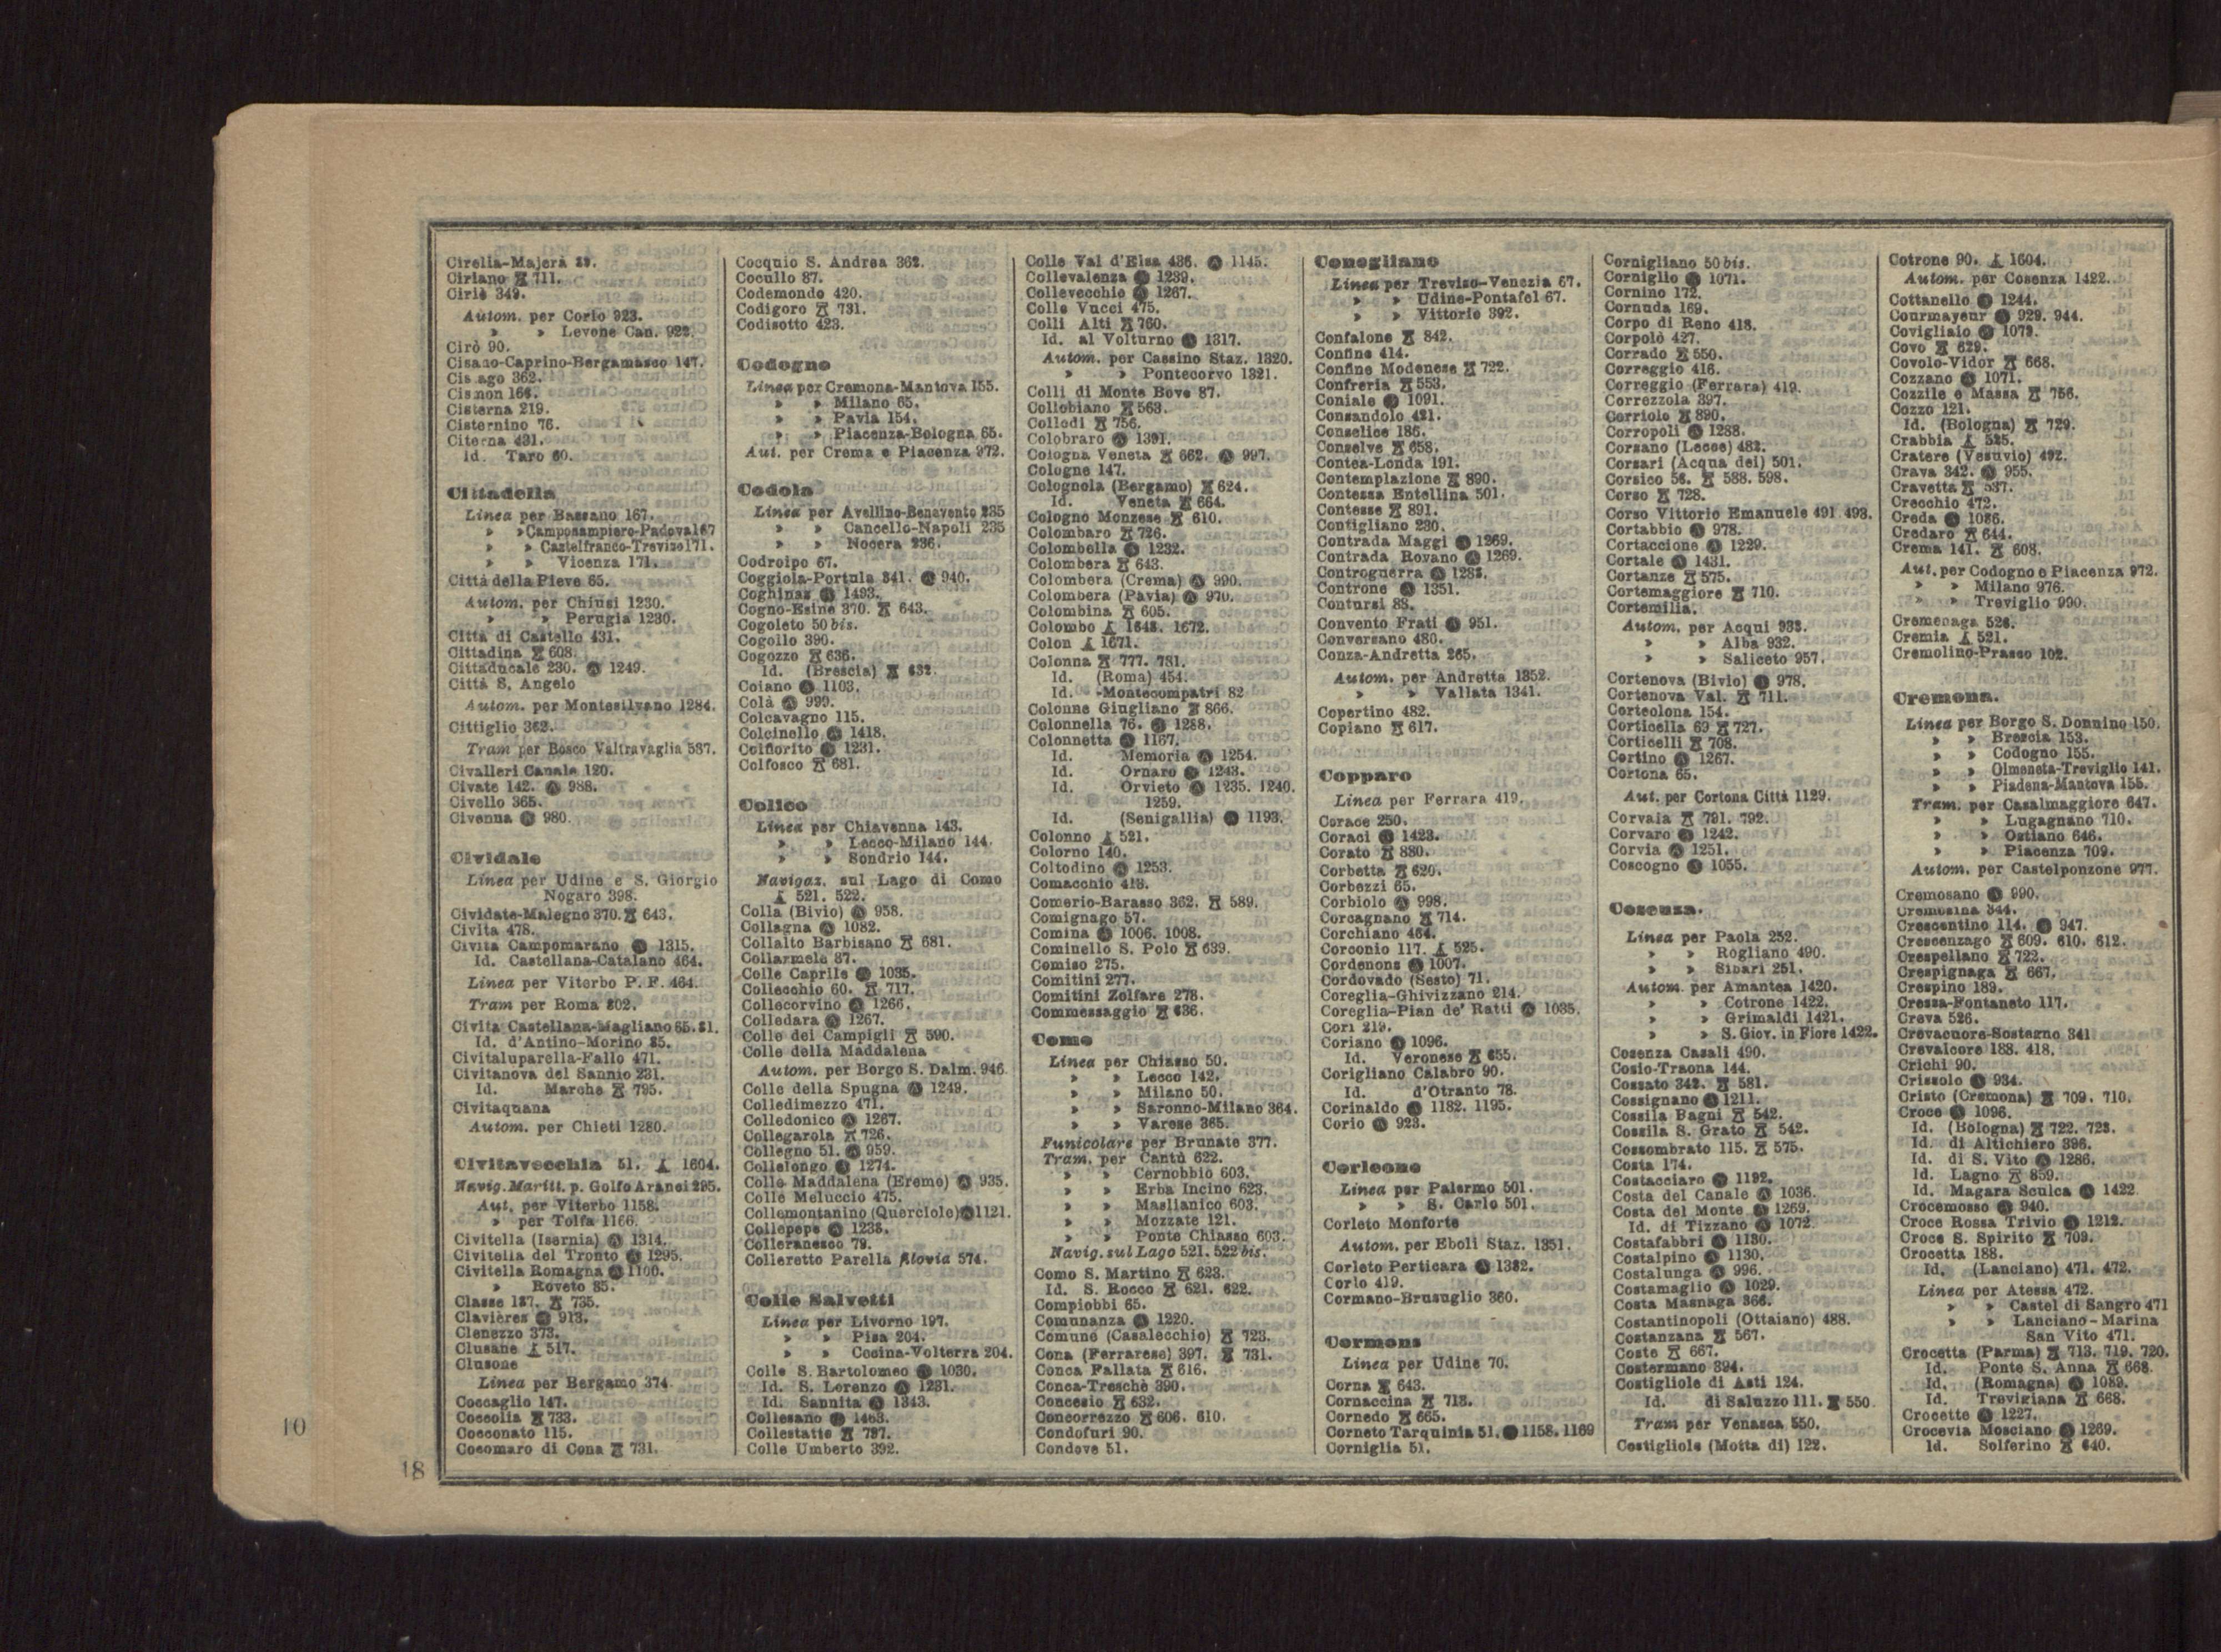 Cirella-Majerà
Ciriano 711.
Ciriè 349.
Autom. per Corio 923.
» » Levone Can. 922.
Cirò 90.
Cisano-Caprino-Bergamasco 147.
Cis ago 362.
Cismon
Cisterna 219.
Cisternino 76.
Citerna 431.
Id. Taro 60.
Cittadella
Linea per Bassano 167.
» » Camposampiero-Padova 167
» » Castelfranco-Treviso 171.
» » Vicenza 171.
Città della Pieve 65.
Autom. per Chiusi 1230.
» » Perugia 1230.
Città di Castello 431.
Cittadina 608.
Cittaducale 230. Ⓐ 1249.
Città S. Angelo
Autom. per Montesilvano 1284.
Cittiglio 362.
Tram per Bosco Valtravaglia 587.
Civalleri Canale 120.
Civate 142. Ⓐ 988.
Civello 365.
Civenna Ⓐ 980.
Cividale
Linea per Udine e S. Giorgio
Nogaro 398.
Cividate-Malegno 370. 643.
Civita 478.
Civita Campomarano Ⓐ 1315.
Id. Castellana-Catalano 464.
Linea per Viterbo P. F. 464.
Tram per Roma 802.
Civita Castellana-Magliano 65. 81.
Id. d'Antino-Morino 85.
Civitaluparella-Fallo 471.
Civitanova del Sannio 231.
Id. Marche 795.
Civitaquana
Autom. per Chieti 1280.
Civitavecchia 51. 1604.
Navig. Maritt. p. Golfo Aranci 295.
Aut. per Viterbo 1158.
» per Tolfa 1166.
Civitella (Isernia) Ⓐ 1314.
Civitella del Tronto Ⓐ 1295.
Civitella Romagna Ⓐ 1100.
» Roveto 85.
Classe 187. 735.
Clavières Ⓐ 913.
Clenezzo 373.
Clusane 517.
Clusone
Linea per Bergamo 374.
Coccaglio 147.
Coccolia 733.
Cocconato 115.
Cocomaro di Cona 731.
Cocquio S. Andrea 362.
Cocullo 87.
Codemondo 420.
Codigoro 731.
Codisotto 423.
Codogno
Linea per Cremona-Mantova 155.
» » Milano 65.
» » Pavia 154.
» » Piacenza-Bologna 65.
Aut. per Crema e Piacenza 972.
Codola
Linea per Avellino-Benevento 235
» » Cancello-Napoli 235
» » Nocera 236.
Codroipo 67.
Coggiola-Portula 341. Ⓐ 940.
Coghinas Ⓐ 1493.
Cogno-Esine 370. 643.
Cogoleto 50 bis.
Cogollo 390.
Cogozzo 636.
Id. (Brescia) 632.
Coiano Ⓐ 1103.
Colà Ⓐ 999.
Colcavagno 115.
Colcinello Ⓐ 1418.
Colfiorito Ⓐ 1231.
Colfosco 681.
Colico
Linea per Chiavenna 143.
» » Lecco-Milano 144.
» » Sondrio 144.
Navigaz. sul Lago di Como
521. 522.
Colla (Bivio) Ⓐ 958.
Collagna Ⓐ 1082.
Collalto Barbisano 681.
Collarmele 87.
Colle Caprile Ⓐ 1035.
Collecchio 60. 717.
Collecorvino Ⓐ 1266.
Colledara Ⓐ 1267.
Colle dei Campigli 590.
Colle della Maddalena
Autom. per Borgo S. Dalm. 946
Colle della Spugna Ⓐ 1249.
Colledimezzo 471.
Colledonico Ⓐ 1267.
Collegarola 726.
Collegno 51. Ⓐ 959.
Collelongo Ⓐ 1274.
Colle Maddalena (Eremo) Ⓐ 935.
Colle Meluccio 475.
Collemontanino (Querciole) Ⓐ 1121.
Collepepe Ⓐ 1238.
Colleranesco 79.
Colleretto Parella Alovia 574.
Colle Salvetti
Linea per Livorno 197.
» » Pisa 204.
» » Cecina-Volterra 204.
Colle S. Bartolomeo Ⓐ 1030.
Id. S. Lorenzo Ⓐ 1231.
Id. Sannita Ⓐ 1343.
Collesano Ⓐ
Collestatte 797.
Colle Umberto 392.
Colle Val d'Elsa 486. Ⓐ 1145.
Collevalenza Ⓐ 1239.
Collevecchio Ⓐ 1267.
Colle Vucci 475.
Colli Alti 760.
Id. al Volturno Ⓐ 1317.
Autom. per Cassino Staz. 1320.
» » Pontecorvo 1321.
Colli di Monte Bove 87.
Collobiano 563.
Collodi 756.
Colobraro Ⓐ 1391.
Cologna Veneta 662. Ⓐ 997.
Cologne 147.
Colognola (Bergamo) 624.
Id. Veneta 664.
Cologno Monzese 610.
Colombaro 726.
Colombella Ⓐ 1232.
Colombera 643.
Colombera (Crema) Ⓐ 990.
Colombera (Pavia) Ⓐ 970.
Colombina 605.
Colombo 1648. 1672.
Colon 1671.
Colonna 777. 781.
Id. (Roma) 454.
Id. -Montecompatri 82
Colonne Giugliano 866.
Colonnella 76. Ⓐ 1288.
Colonnetta Ⓐ 1167.
Id. Memoria Ⓐ 1254.
Id. Ornaro Ⓐ 1243.
Id. Orvieto Ⓐ 1235. 1240.
1259.
Id. (Senigallia) Ⓐ 1193.
Colonno 521.
Colorno 140.
Coltodino Ⓐ 1253.
Comacchio 418.
Comerio-Barasso 362. 589.
Comignago 57.
Comina Ⓐ 1006. 1008.
Cominello S. Polo 639.
Comiso 275.
Comitini 277.
Comitini Zolfare 278.
Commessaggio 636.
Como
Linea per Chiasso 50.
» » Lecco 142.
» » Milano 50.
» » Saronno-Milano 364.
» » Varese 365.
Funicolare per Brunate 377.
Tram. per Cantù 622.
» » Cernobbio 603.
» » Erba Incino 623.
» » Maslianico 603.
» » Mozzate 121.
» » Ponte Chiasso 603.
Navig. sul Lago 521. 522 bis.
Como S. Martino 623.
Id. S. Rocco 621. 622.
Compiobbi 65.
Comunanza Ⓐ 1220.
Comune (Casalecchio) 723.
Cona (Ferrarese) 397. 731.
Conca Fallata 616.
Conca-Treschè 390.
Concesio 632.
Concorrezzo 606. 610.
Condofuri 90.
Condove 51.
Conegliano
Linea per Treviso-Venezia 67.
» » Udine-Pontafel 67.
» » Vittorio 392.
Confalone 842.
Confine 414.
Confine Modenese 722.
Confreria 553.
Coniale Ⓐ 1091.
Consandolo 421.
Conselice 186.
Conselve 658.
Contea-Londa 191.
Contemplazione 890.
Contessa Entellina 501.
Contesse 891.
Contigliano 230.
Contrada Maggi Ⓐ 1269.
Contrada Rovano Ⓐ 1269.
Controguerra Ⓐ 1288.
Controne Ⓐ 1351.
Contursi 88.
Convento Frati Ⓐ 951.
Conversano 480.
Conza-Andretta 265.
Autom. per Andretta 1352.
» » Vallata 1341.
Copertino 482.
Copiano 617.
Copparo
Linea per Ferrara 419.
Corace 250.
Coraci Ⓐ 1423.
Corato 880.
Corbetta 620.
Corbezzi 65.
Corbiolo Ⓐ 998.
Corcagnano 714.
Corchiano 464.
Corconio 117. 525.
Cordenons Ⓐ 1007.
Cordovado (Sesto) 71.
Coreglia-Ghivizzano 214.
Coreglia-Pian de' Ratti Ⓐ 1035.
Cori 219.
Coriano Ⓐ 1096.
Id. Veronese 655.
Corigliano Calabro 90.
Id. d'Otranto 78.
Corinaldo Ⓐ 1182. 1195.
Corio Ⓐ 923.
Corleone
Linea per Palermo 501.
» » S. Carlo 501.
Corleto Monforte
Autom. per Eboli Staz. 1351.
Corleto Perticara Ⓐ 1382.
Corlo 419.
Cormano-Brusuglio 360.
Cormons
Linea per Udine 70.
Corna 643.
Cornaccina 718.
Cornedo 665.
Corneto Tarquinia 51. Ⓐ 1158. 1169
Corniglia 51.
Cornigliano 50 bis.
Corniglio Ⓐ 1071.
Cornino 172.
Cornuda 169.
Corpo di Reno 418.
Corpolò 427.
Corrado 550.
Correggio 416.
Correggio (Ferrara) 419.
Correzzola 397.
Corriolo 890.
Corropoli Ⓐ 1288.
Corsano (Lecce) 482.
Corsari (Acqua dei) 501.
Corsico 56. 588. 598.
Corso 728.
Corso Vittorio Emanuele 491. 493.
Cortabbio Ⓐ 978.
Cortaccione Ⓐ 1229.
Cortale Ⓐ 1431.
Cortanze 575.
Cortemaggiore 710.
Cortemilia.
Autom. per Acqui 933.
» » Alba 932.
» » Saliceto 957.
Cortenova (Bivio) Ⓐ 978.
Cortenova Val. 711.
Corteolona 154.
Corticella 69 727.
Corticelli 708.
Cortino Ⓐ 1267.
Cortona 65.
Aut. per Cortona Città 1129.
Corvaia 791. 792.
Corvaro Ⓐ 1242.
Corvia Ⓐ 1251.
Coscogno Ⓐ 1055.
Cosenza.
Linea per Paola 252.
» » Rogliano 490.
» » Sibari 251.
Autom. per Amantea 1420.
» » Cotrone 1422.
» » Grimaldi 1421.
» » S. Giov. in Fiore 1422.
Cosenza Casali 490.
Cosio-Traona 144.
Cossato 342. 581.
Cossignano Ⓐ 1211.
Cossila Bagni 542.
Cossila S. Grato 542.
Cossombrato 115. 575.
Costa 174.
Costacciaro Ⓐ 1192.
Costa del Canale Ⓐ 1036.
Costa del Monte Ⓐ 1269.
Id. di Tizzano Ⓐ 1072.
Costafabbri Ⓐ 1130.
Costalpino Ⓐ 1130.
Costalunga Ⓐ 996.
Costamaglio Ⓐ 1029.
Costa Masnaga 366.
Costantinopoli (Ottaiano) 488.
Costanzana 567.
Coste 667.
Costermano 394.
Costigliole di Asti 124.
Id. di Saluzzo 111. 550.
Tram per Venasca 550.
Costigliole (Motta di) 122.
Cotrone 90. 1604.
Autom. per Cosenza 1422.
Cottanello Ⓐ 1244.
Courmayeur Ⓐ 929. 944.
Covigliaio Ⓐ 1079.
Covo 629.
Covolo-Vidor 668.
Cozzano Ⓐ 1071.
Cozzile e Massa 756.
Cozzo 121.
Id. (Bologna) 729.
Crabbia 525.
Cratere (Vesuvio) 492.
Crava 342. Ⓐ 955.
Cravetta 537.
Crecchio 472.
Creda Ⓐ 1086.
Credaro 644.
Crema 141. 608.
Aut. per Codogno e Piacenza 972.
» » Milano 976.
» » Treviglio 990.
Cremenaga 526.
Cremia 521.
Cremolino-Prasco 102.
Cremona.
Linea per Borgo S. Donnino 150.
» » Brescia 153.
» » Codogno 155.
» » Olmeneta-Treviglio 141.
» » Piadena-Mantova 155.
Tram. per Casalmaggiore 647.
» » Lugagnano 710.
» » Ostiano 646.
» » Piacenza 709.
Autom. per Castelponzone 977.
Cremosano Ⓐ 990.
Cremosina 344.
Crescentino 114. Ⓐ 947.
Crescenzago 609. 610. 612.
Crespellano 722.
Crespignaga 667.
Crespino 189.
Cressa-Fontaneto 117.
Creva 526.
Crevacuore-Sostegno 341
Crevalcore 188. 418.
Crichi 90.
Crissolo Ⓐ 934.
Cristo (Cremona) 709. 710.
Croce Ⓐ 1096.
Id. (Bologna) 722. 723.
Id. di Altichiero 396.
Id. di S. Vito Ⓐ 1286.
Id. Lagno 859.
Id. Magara Sculca Ⓐ 1422.
Crocemosso Ⓐ 940.
Croce Rossa Trivio Ⓐ 1212.
Croce S. Spirito 709.
Crocetta 188.
Id. (Lanciano) 471. 472.
Linea per Atessa 472.
» » Castel di Sangro 471
» » Lanciano-Marina
San Vito 471.
Crocetta (Parma) 713. 719. 720.
Id. Ponte S. Anna 668.
Id. (Romagna) Ⓐ 1089.
Id. Trevigiana 668.
Crocette Ⓐ 1227.
Crocevia Mosciano Ⓐ 1269.
Id. Solferino 640.
10
18